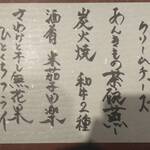 クリームチーズ
あんきもの茶碗蒸し
炭火焼 和牛2種
酒肴 米茄子田楽
干し無花果
ひとくちフライ